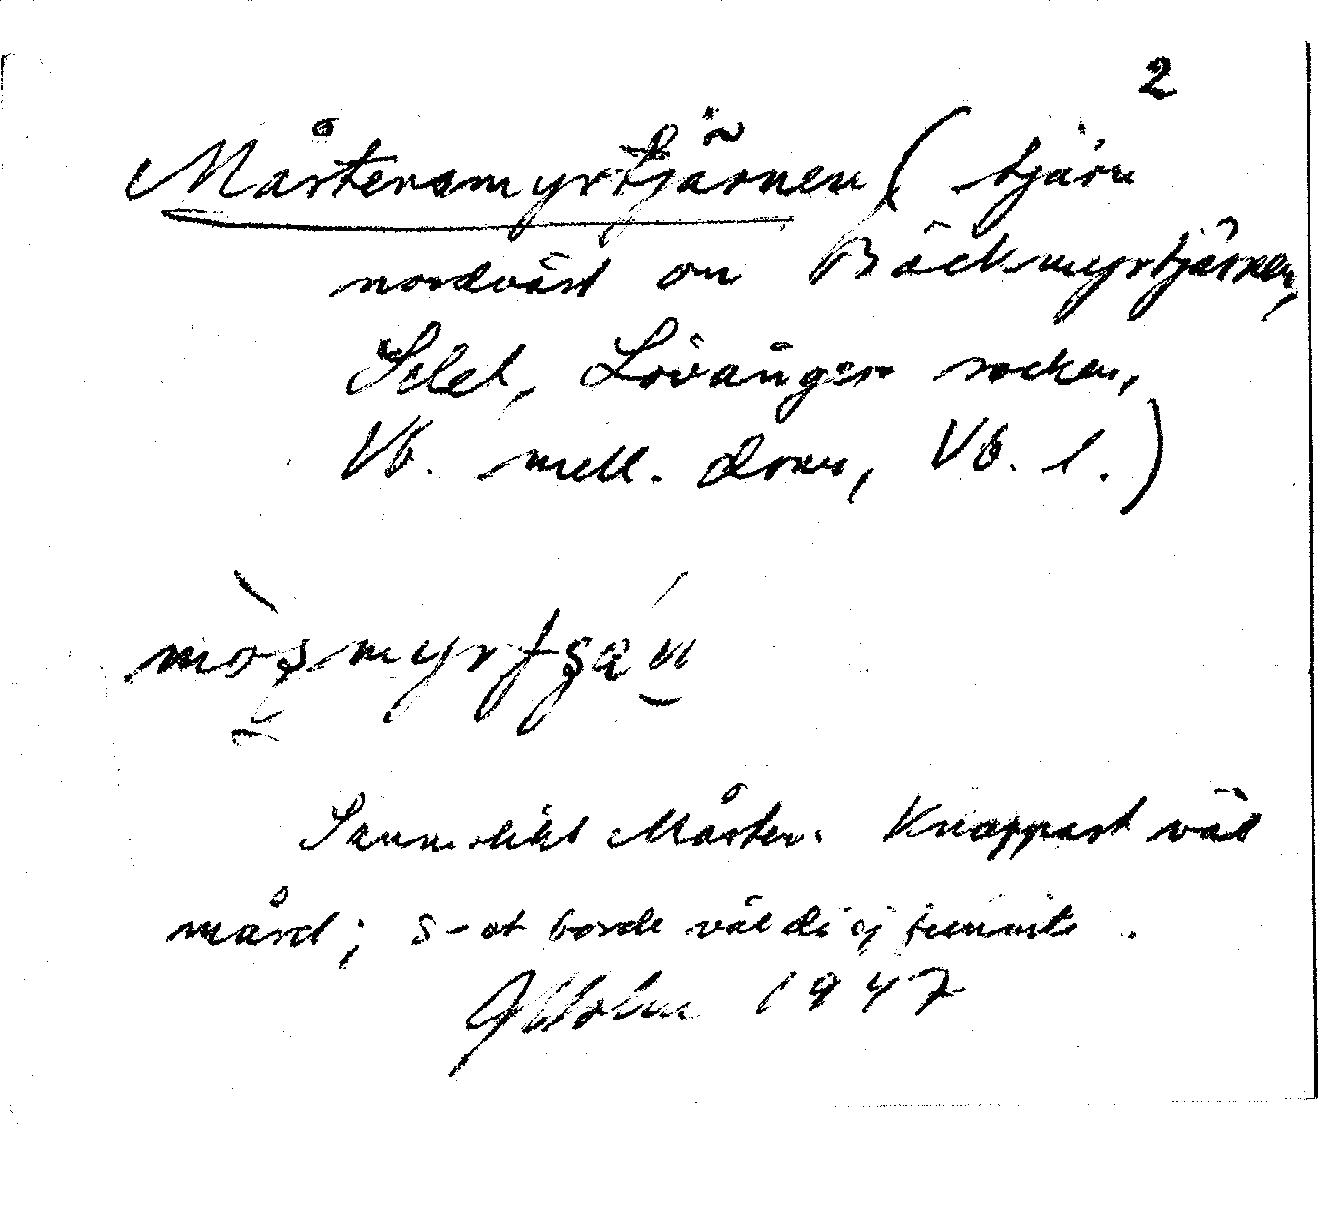 2
Mårtensmyrtjärnen (tjärn
nordväst om Bäckmyrtjärnen,
Selet, Lövånger socken,
Vb. mell. doms, Vb. l.)
Sannolikt Mårten. Knappast väl
mård; s-et borde väl då ej funnits.
Holm 1947